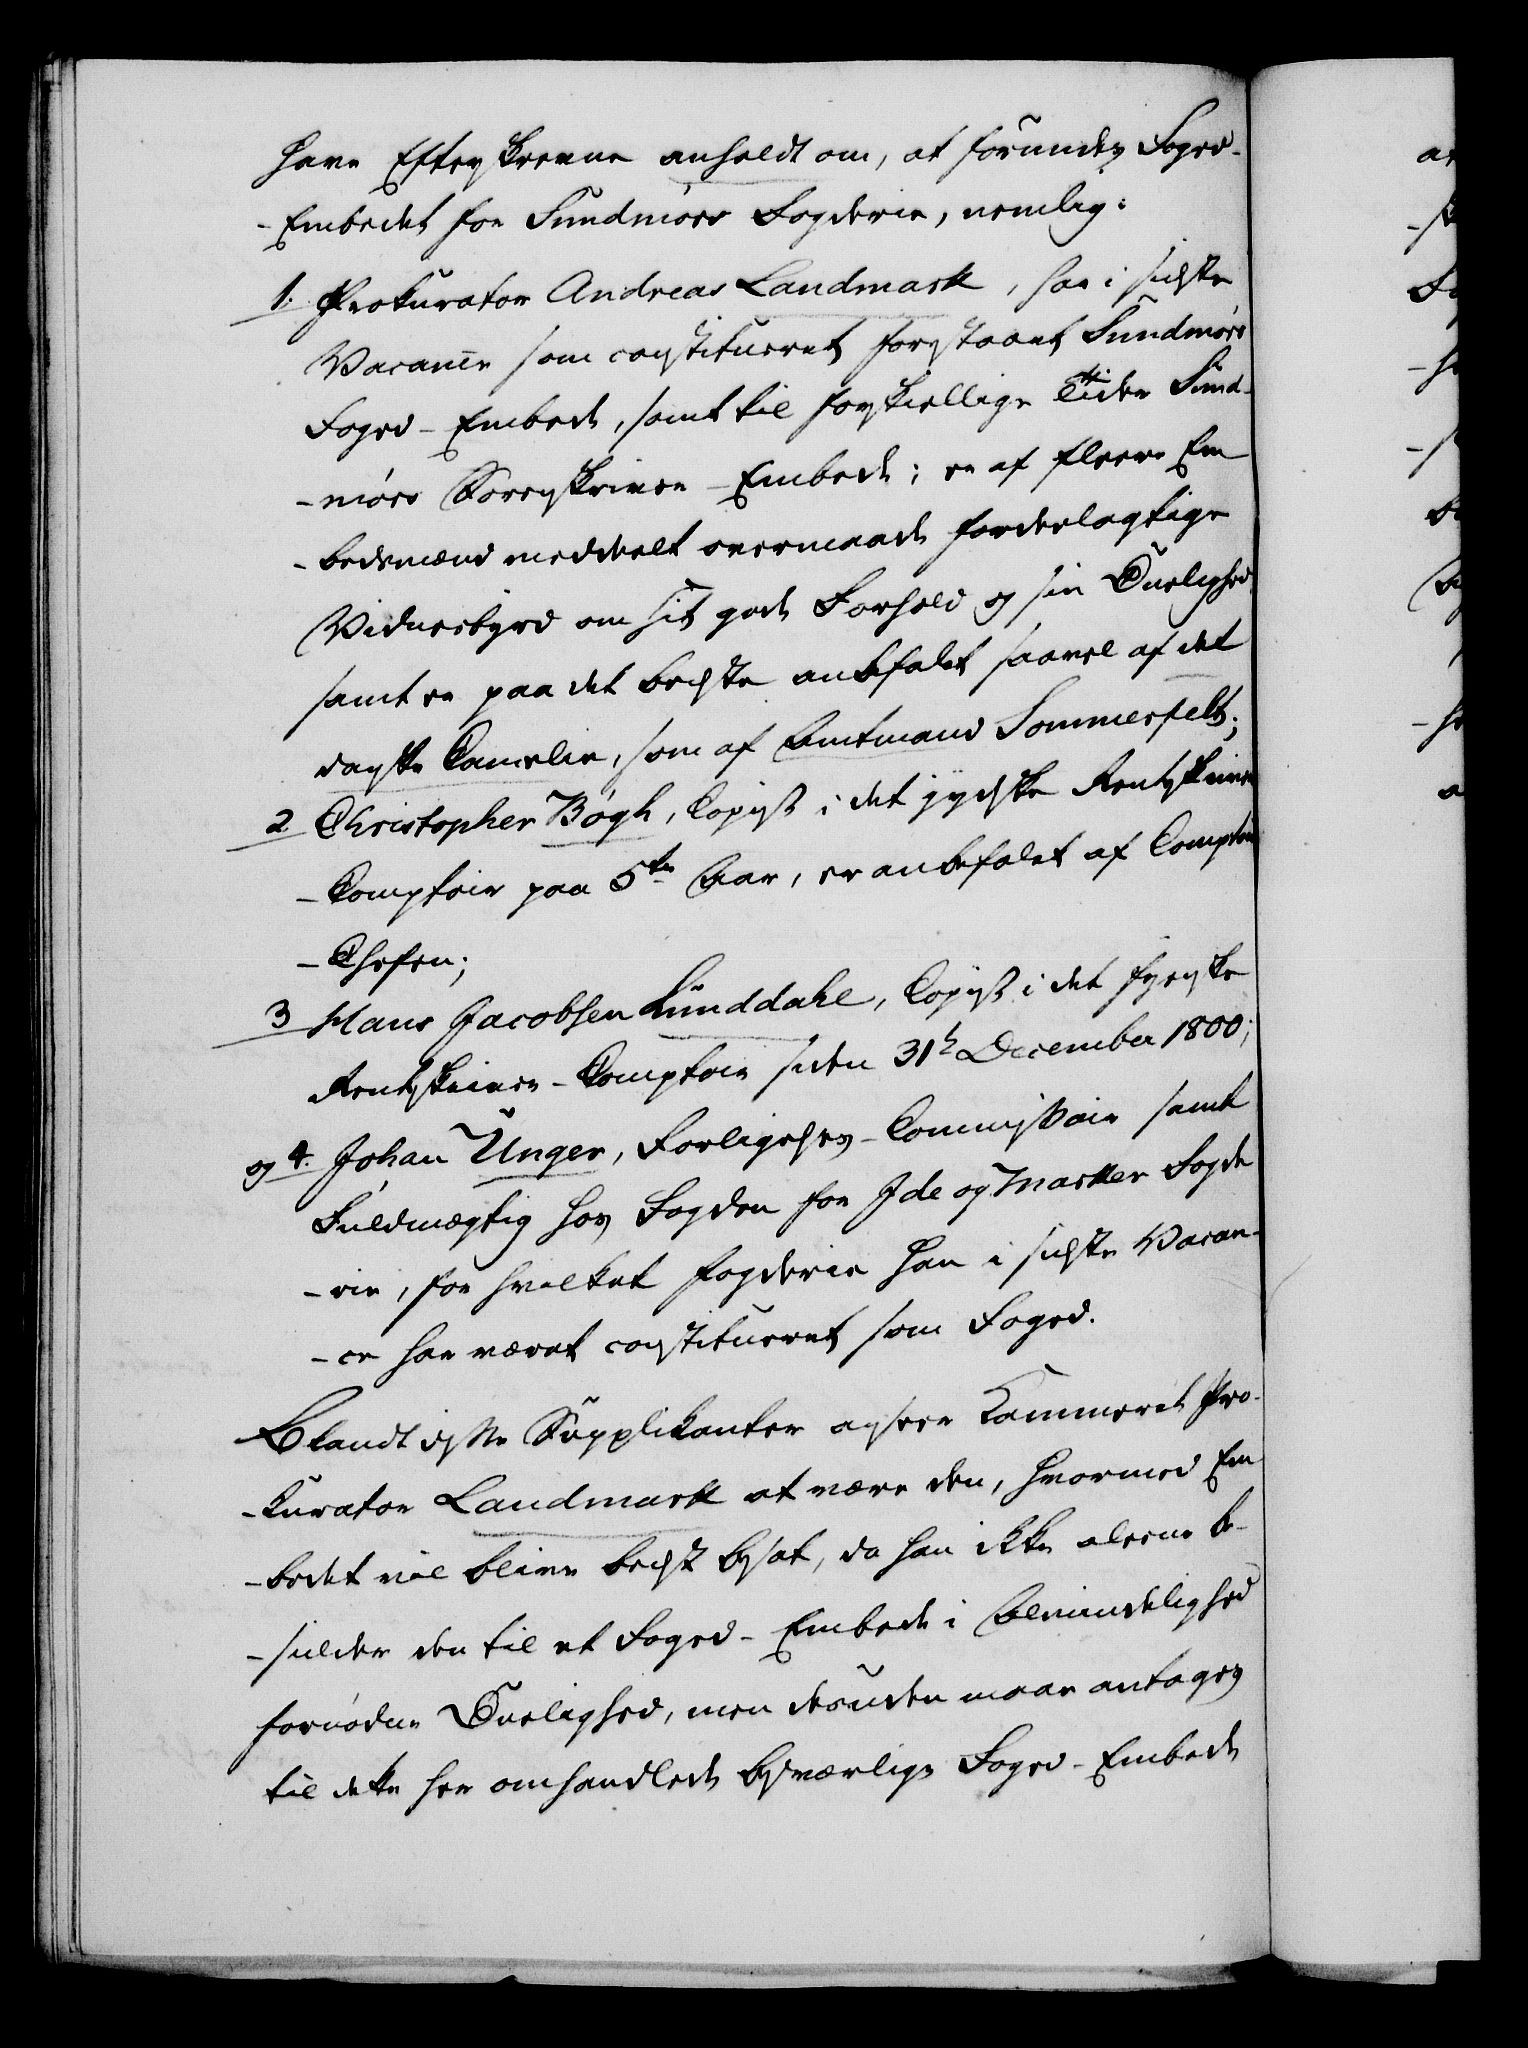 have Efterskrevne anholdt om, at forundes Foged-
-Embedet for Sundmörs Fogderie, nemlig:
1. Prokurator Andreas Landmark, har i sidste
Vacance som constitueret forstaaet Sundmörs
Foged-Embede, samt til forskiellige Tider Sund-
-mörs Sorenskriver-Embede; er af fleere Em
-bedsmænd meddeelt overmaade fordeelagtige
Vidnesbyrd om sit gode Forhold og sin Duelighed
samt er paa det bedste anbefalet saavel af det
danske Cancelie, som af Amtmand Sommerfelt;
2 Christopher Bögh, Copist i det jydske Rentskriver
-Comptoir paa 5te Aar, er anbefalet af Comptoir
-Chefen;
3 Hans Jacobsen Lunddahl, Copist i det fyenske
Rentskriver-Comptoir siden 31te December 1800;
og 4. Johan Unger, Forligelses-Commissair samt
Fuldmægtig hos Fogden for Ide og Markers Fogde
-rie, for hvilket Fogderie han i sidste Vacan-
-ce har været constitueret som Foged.
Blandt disse Supplikanter anseer Kammeret Pro-
-kurator Landmark at være den, hvormed Em
-bedet vil blive bedst besat, da han ikke aleene be-
-sidder den til et Foged-Embede i Almindelighed
fornødne Duelighed, men desuden maae antages
til dette her omhandlede besværlige Foged-Embede